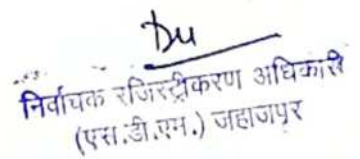 निर्वाचक रजिस्ट्रीकरण अधिकारी
(एस.डी.एम.) जहाजपुर